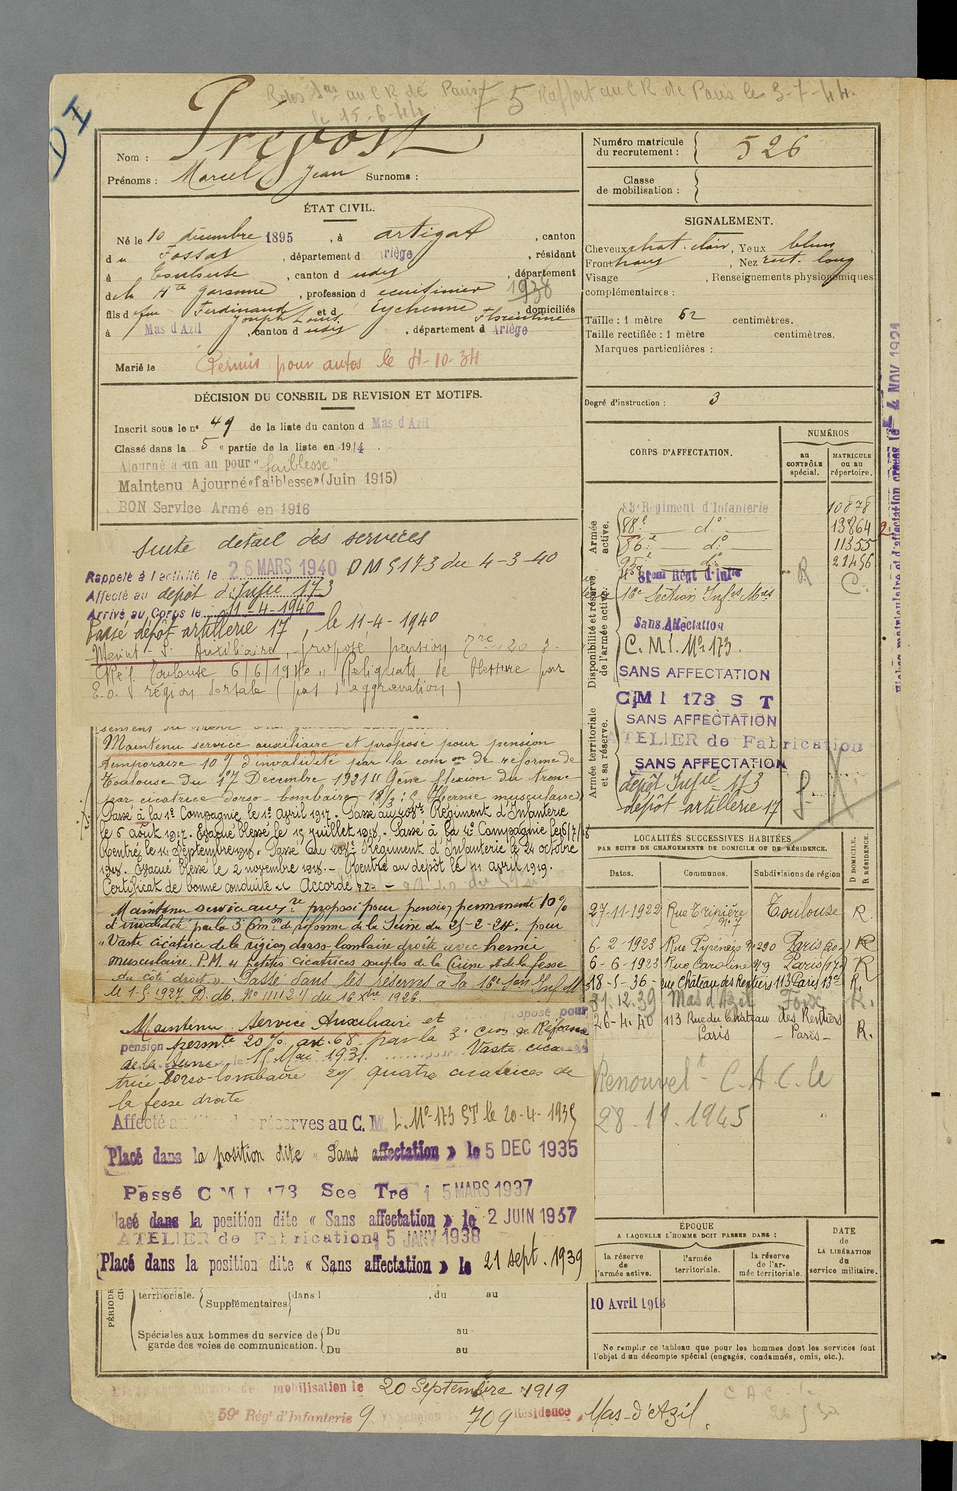 Rapport au C R de Paris le 3-7-44.
le 15-6-44
75
D I
Nom : Prévost
Prénoms : Marcel Jean Surnoms :
Numéro matricule du recrutement : 526
Classe de mobilisation :
ÉTAT CIVIL.
Né le 10 décembre 1895, à Artigat, canton
du Fossat, département d Ariège, résidant
à Toulouse, canton d udit, département
de la Hte Garonne, profession d
1938
fils de feu Ferdinand Joseph Louis et d Eychenne Florentine, domiciliés
à Mas d'Azil, canton d udit, département d Ariège
Marié le
Permis pour autos le 4-10-34
SIGNALEMENT.
Cheveux chat. clair, Yeux bleus
Front , Nez rect. long
Visage , Renseignements physionomiques
complémentaires :
Taille : 1 mètre 62 centimètres.
Taille rectifiée : 1 mètre centimètres.
Marques particulières :
Degré d'instruction : 3
DÉCISION DU CONSEIL DE REVISION ET MOTIFS.
Inscrit sous le n° 49 de la liste du canton d Mas d'Azil
Classé dans la 5e partie de la liste en 1914.
Ajourné a un an pour "faiblesse"
Maintenu Ajourné «faiblesse» (Juin 1915)
BON Service Armé en 1916
suite détail des services
Rappelé à l'activité le 26 MARS 1940 DM 5173 du 4-3-40
Affecté au dépôt d'Infie 173
Arrivé au Corps le 11-4-1940
Passé dépôt artillerie 17, le 11-4-1940
Maint. S. Auxiliaire, proposé pension
Toulouse 6/6/1940 "Reliquats de blessure par
E.O. région dorsale (pas d'aggravation)
Maintenu service auxiliaire et proposé pour pension
temporaire 10% d'invalidité par la comon de réforme de
Toulouse du 17 Décembre 1921 "Gêne flexion du tronc
par cicatrice dorso-lombaire
Passé à la 1e Compagnie le 1er Avril 1917. Passé au 88e Régiment d'Infanterie
le 6 août 1917. Evacué blessé le 15 juillet 1918. Passé à la 4e Compagnie
Rentré le 14 septembre 1918. Passé au Régiment d'Infanterie le 24 octobre
1918. Evacué blessé le 2 novembre 1918. - Rentré au dépôt le 11 avril 1919.
Certificat de bonne conduite "Accordé"
Maintenu service auxre proposé pour pension permanente 10%
d'invalidité par la 3e Comon de réforme de la Seine du 25-2-24. pour
"Vaste cicatrice de la région dorso-lombaire droite avec hernie
musculaire. P.M. et petites cicatrices souples de la cuisse et de la fesse
du côté droit" Passé dans les réserves à la 16e Son Inf M
le 1-5-1927. D.M. N° 11112 du 16 Xbre 1926.
Maintenu Service Auxiliaire et proposé pour
pension permte 20% art. 68 par la 3e Cion de Réforme
de la Seine le 15 Mai 1931. Vaste cica
trice dorso-lombaire et quatre cicatrices de
la fesse droite
Affecté réserves au C. M. I. N° 173 ST le 20-4-1935
Placé dans la position dite « Sans affectation » le 5 DEC 1935
Passé C M I 173 Sce Tre 15 MARS 1937
Placé dans la position dite « Sans affectation » le 2 JUIN 1937
ATELIER de Fabrication 15 JANV 1938
Placé dans la position dite « Sans affectation » le 21 sept. 1939
territoriale. Supplémentaires dans l , du au
Spéciales aux hommes du service de garde des voies de communication. Du au
Du au
CORPS D'AFFECTATION.
NUMÉROS
au CONTRÔLE spécial.
MATRICULE ou au répertoire.
Armée active.
83e Régiment d'Infanterie 10878
88e — d° — 13864
86e — d° — 11355
21456
Disponibilité et réserve de l'armée active.
81eme Régt d'Infie
R C.
16e Section
Sans Affectation
C. M. I. N° 173.
SANS AFFECTATION
CMI 173 S T
Armée territoriale et sa réserve.
SANS AFFECTATION
ATELIER de Fabrication
SANS AFFECTATION
dépôt Infie 173
dépôt artillerie 17
4 NOV 1921
LOCALITÉS SUCCESSIVES HABITÉES
PAR SUITE DE CHANGEMENTS DE DOMICILE OU DE RÉSIDENCE.
Dates. Communes. Subdivisions de région D DOMICILE. R RÉSIDENCE.
27-11-1922 Rue Tripière N° 7 Toulouse R.
6-2-1923 Rue Pyrénées n° 290 Paris (20e) R
6-6-1923 Rue Caroline n° 9 Paris (17e) R
18-5-36 - rue Château des Rentiers 113 Paris 13e R.
31.12.39 Mas d'Azil Foix R.
26-4.40 113 Rue du Château des Rentiers Paris - Paris - R.
Renouvelt C.A.C. le
28.11.1945
ÉPOQUE
A LAQUELLE L'HOMME DOIT PASSER DANS :
la réserve de l'armée active.
l'armée territoriale.
la réserve de l'armée territoriale.
DATE de LA LIBÉRATION du service militaire.
10 Avril 1918
Ne remplir ce tableau que pour les hommes dont les services font
l'objet d'un décompte spécial (engagés, condamnés, omis, etc.).
mobilisation le 20 Septembre 1919
59e Rég' d'Infanterie 9 709 Résidence Mas-d'Azil.